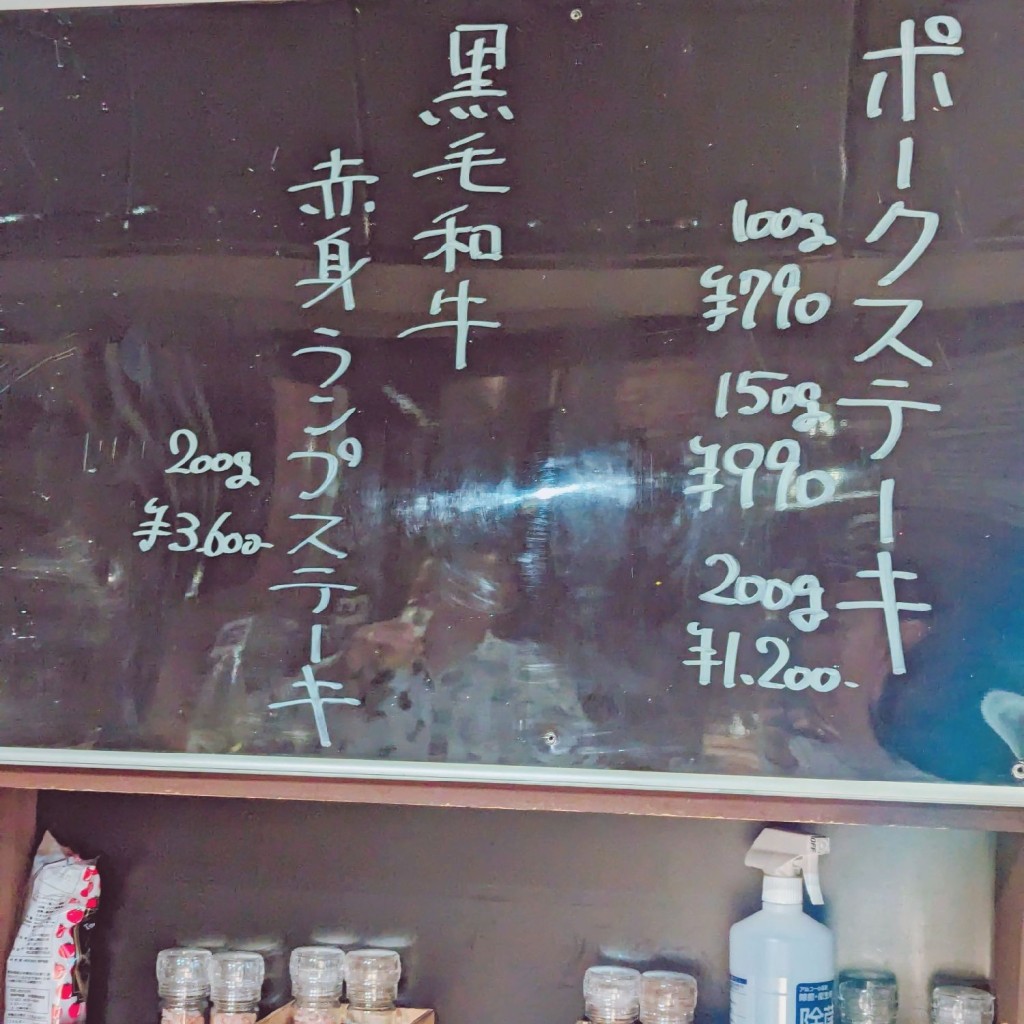 ポークステーキ
100g
¥790
150g
¥990
200g
¥1.200.-
黒毛和牛
赤身ランプステーキ
200g
¥3.600-
アルコール
除菌